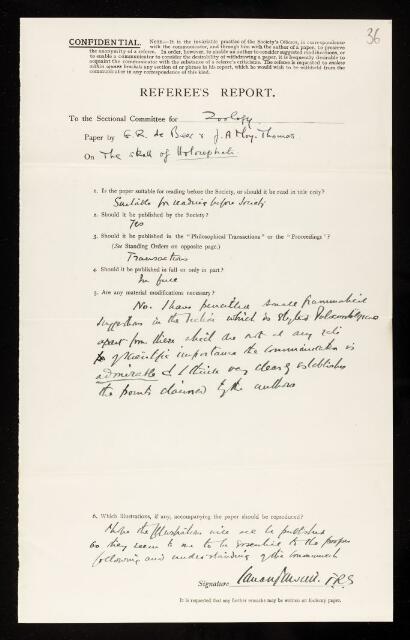 36
CONFIDENTIAL. NOTE.—It is the invariable practice of the Society's Officers, in correspondence
with the communicator, and through him with the author of a paper, to preserve
the anonymity of a referee. In order, however, to enable an author to consider, or
to enable a communicator to consider the desirability of withdrawing a paper, it is frequently desirable to
acquaint the communicator with the substance of a referee's criticisms. The referee is requested to enclose
within square brackets any section or phrase in his report, which he would wish to be withheld from the
communicator in any correspondence of this kind.
REFEREE'S REPORT.
To the Sectional Committee for Zoology
Paper by G. R. de Beer & J. A. Moy-Thomas.
On The skull of Holocephali
1. Is the paper suitable for reading before the Society, or should it be read in title only?
Suitable for reading before Society
2. Should it be published by the Society?
Yes
3. Should it be published in the "Philosophical Transactions" or the "Proceedings"?
(See Standing Orders on opposite page.)
Transactions
4. Should it be published in full or only in part?
In full
5. Are any material modifications necessary?
No. I have pencilled small grammatical
suggestions in the section which is styled
apart from these which are not of any
of scientific importance the communication is
admirable & I think very clearly establishes
the points claimed by the authors
6. Which illustrations, if any, accompanying the paper should be reproduced?
I hope the illustrations will all be published
as they seem to me to be essential to the proper
following and understanding of the
Signature F.R.S
It is requested that any further remarks may be written on ordinary paper.